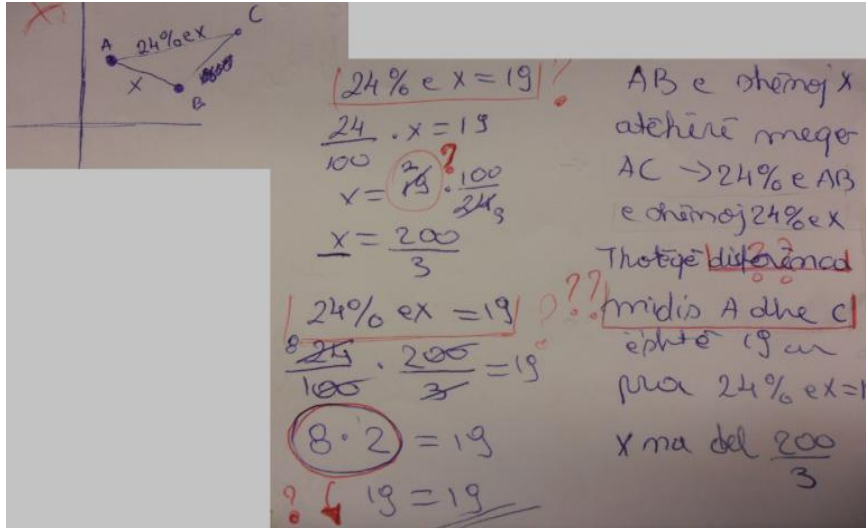 A
24% e x
C
x
B
24% e x = 19 ?
24/100 · x = 19
x = 19 · 100/24 ?
x = 200/3
24% e x = 19 ?
24/100 · 200/3 = 19
8 · 2 = 19
? 19 = 19
AB e shënoj x
atëherë
AC → 24% e AB
e shënoj 24% e x
Thotë që
?? midis A dhe C
është 19 cm
pra 24% e x = 1
x na del 200/3